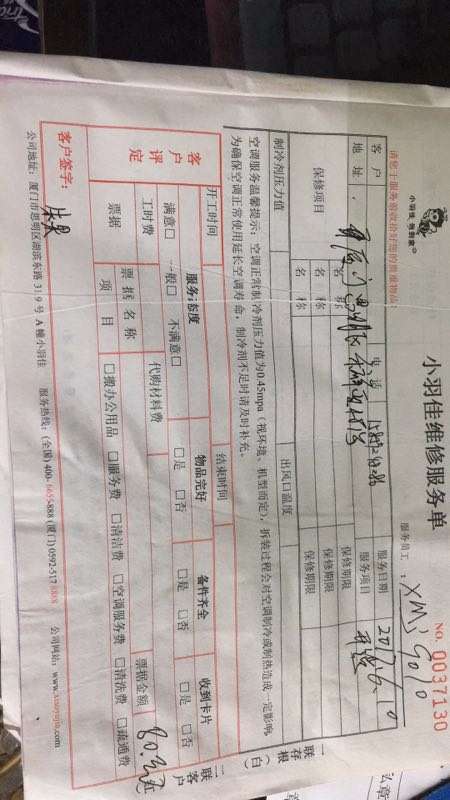 小羽佳 我到家®
小羽佳维修服务单
NO. 0037130
请您于服务前收拾好您的贵重物品:
服务员工: XMJ 9010
客户
电话
服务日期 2017.6.10
地址
服务项目
保修项目
名称
保修期限
名称
保修期限
名称
保修期限
制冷剂压力值
出风口温度
空调服务温馨提示: 空调正常制冷剂压力值为0.45mpa (视环境、机型而定), 拆装过程会对空调制冷或制热造成一定影响,
为确保空调正常使用延长空调寿命, 制冷剂不足时请及时补充。
一联 存根 (白)
开工时间
结束时间
客户评定
服务态度
物品完好
备件齐全
收到卡片
满意□ 一般□ 不满意□
□是 □否
□是 □否
□是 □否
工时费
代购材料费
票据金额
票据
票据名称
项目
□搬办公用品 □服务费 □清洁费 □空调服务费 □清洗费 □疏通费
二联 客户 (红)
客户签字:
公司地址: 厦门市思明区湖滨东路319号A幢小羽佳 服务热线: (全国) 400-6655888 (厦门) 0592-5178888 公司网站: www.xiaoyujia.com